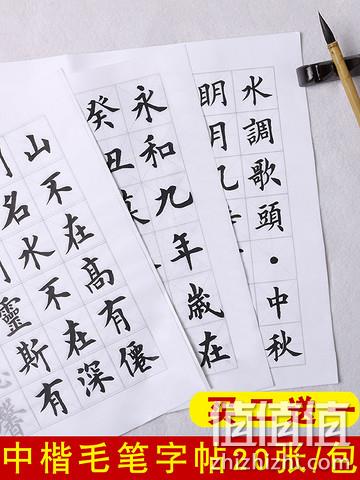 水調歌頭·中秋
明月几
永和九年歲在
癸丑
山不在高有僊
名水不在深
靈斯有
馨
买二送一
值值值
中楷毛笔字帖20张/包
zhizhizhi.com